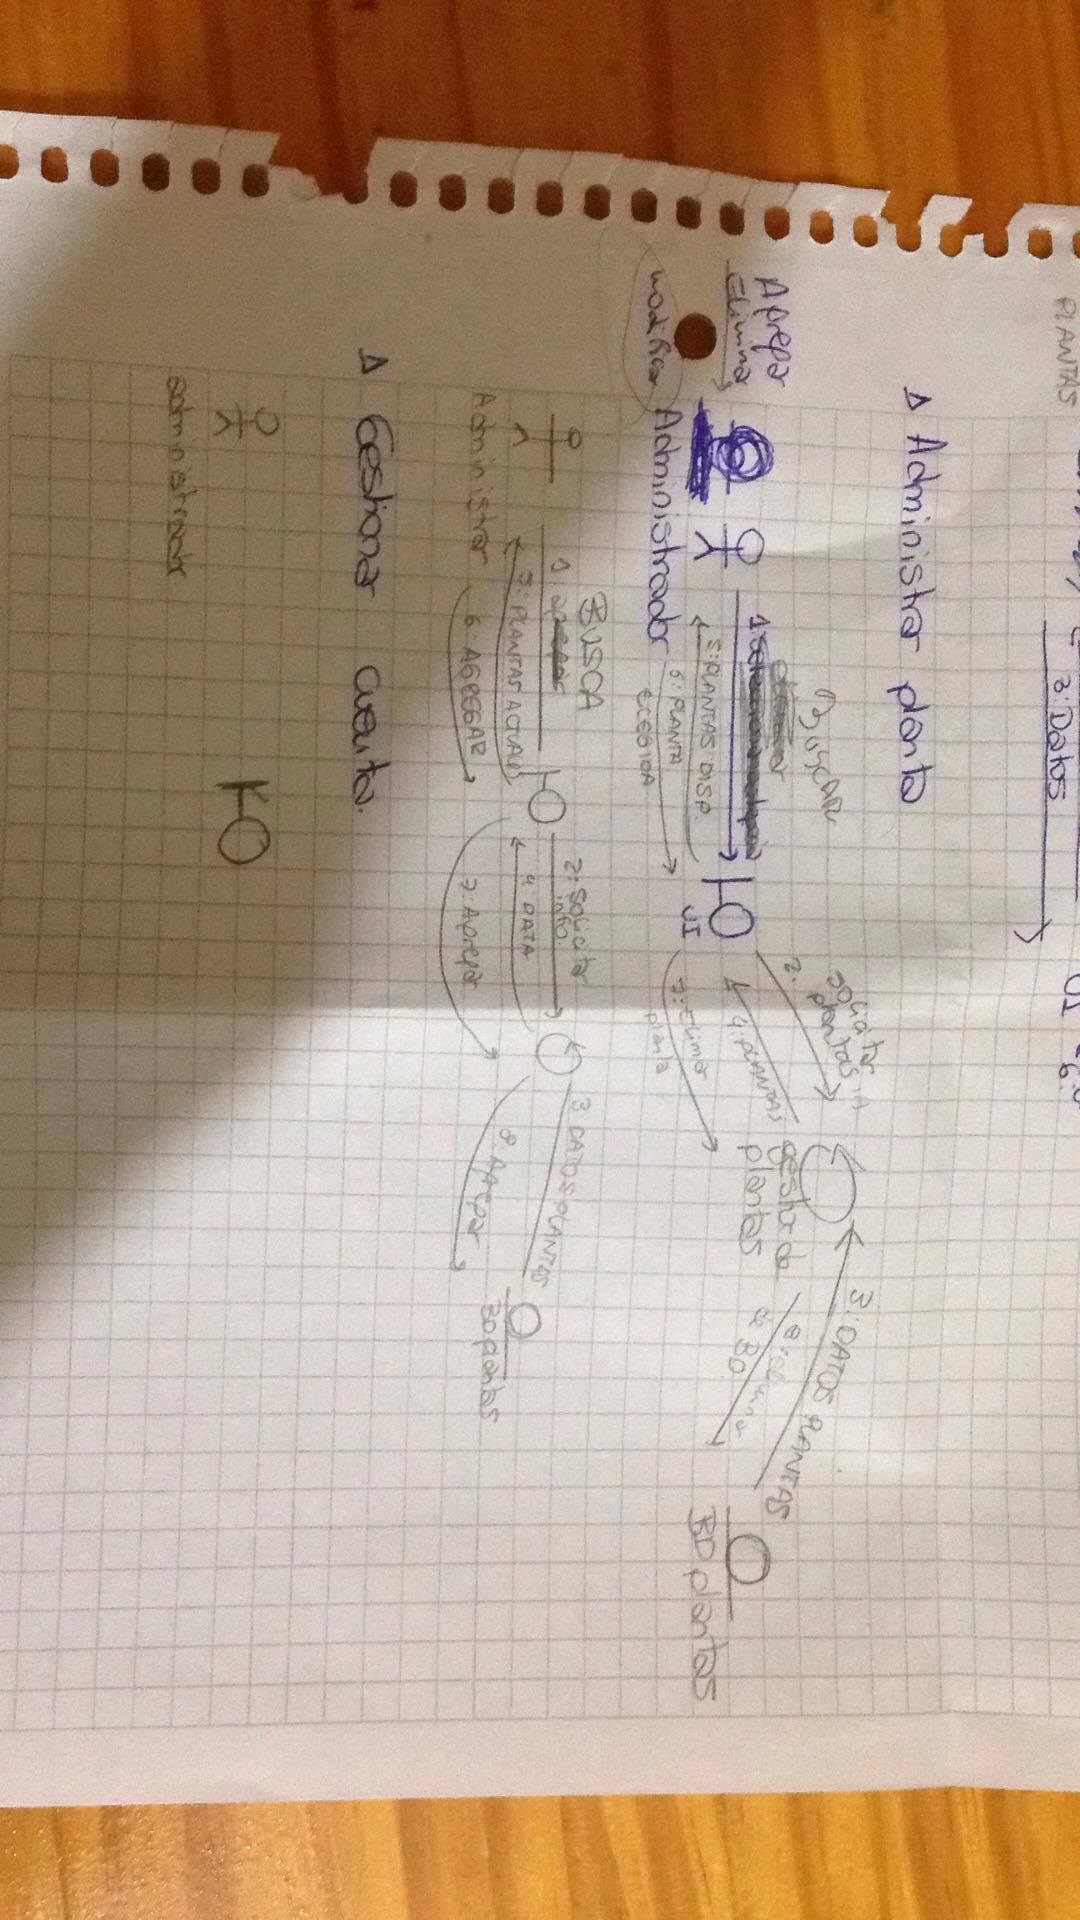 PLANTAS
3: Datos
UI
6:
Administrar planta
Agregar
Eliminar
modificar
Administrador
BUSCAR
1:
5: PLANTAS DISP.
6: PLANTA
ECEGIDA
UI
2: solicitar
plantas
4: PLANTAS
7: Elimar
planta
gestor de
plantas
3: DATOS PLANTAS
8: eliminar
de BD
BD plantas
BUSCA
1:
5: PLANTAS ACTUALES
6: AGREGAR
Administrar
2: solicitar
info
4 DATA
7: Agregar
3 DATOS PLANTAS
8: Agregar
BD plantas
Gestionar cuenta.
administrador